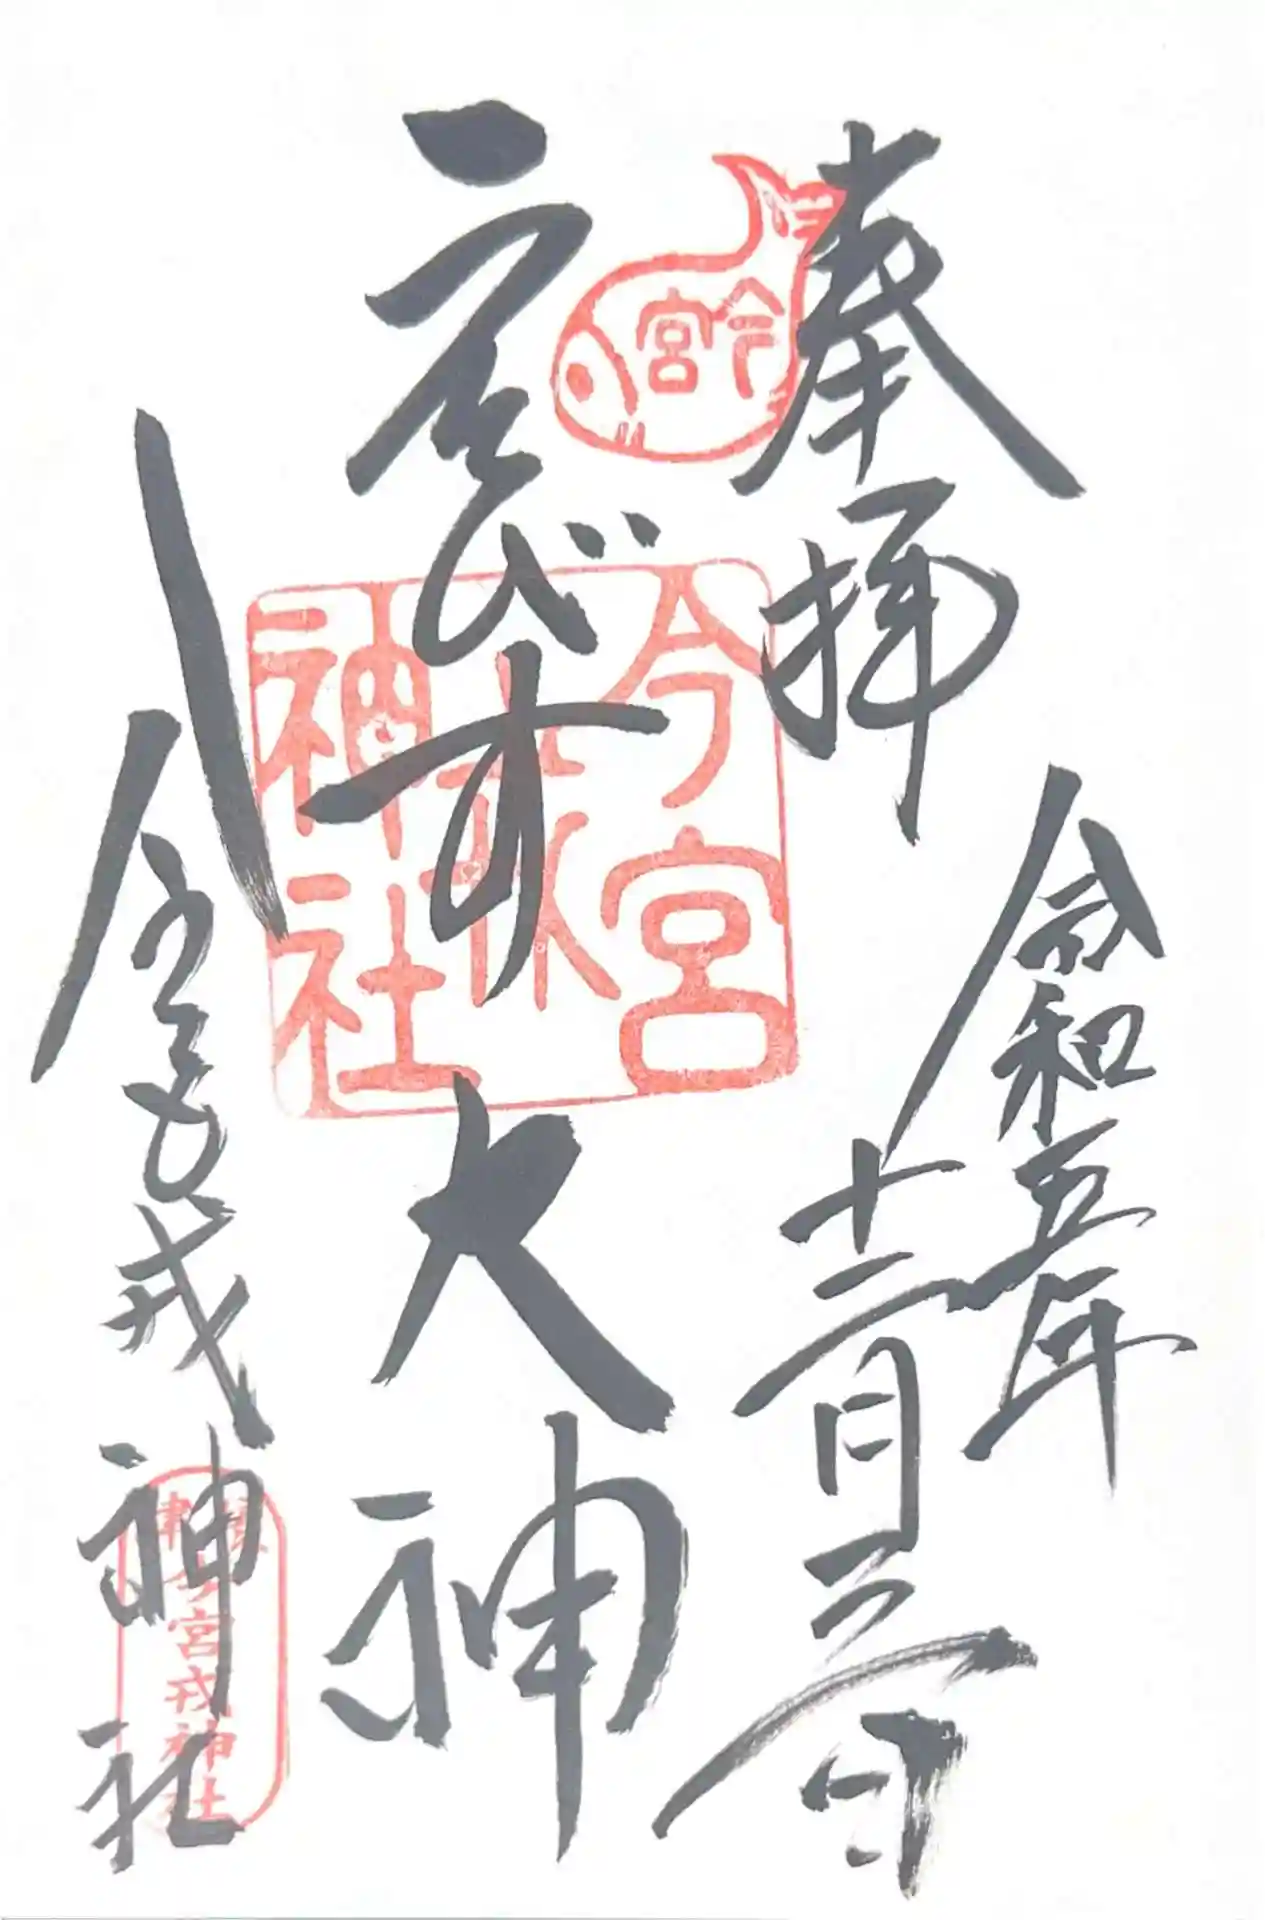 奉拝
令和五年
十二月三日
ゑびす大神
今宮戎神社
今宮
今宮戎神社
今宮戎神社